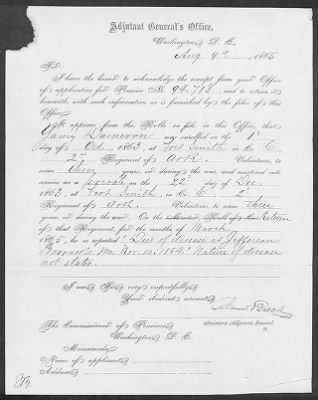 Adjutant General's Office,
Washington D. C.
Aug 9th 1865
Sir:
I have the honor to acknowledge the receipt from your Office
of application for Pension No. 94,718, and to return it
herewith, with such information as is furnished by the files of this
Office.
It appears from the Rolls on file in this Office, that
James Dameron was enrolled on the 1st
day of Oct 1863, at Fort Smith in Co. C
2d Regiment of Ark. Volunteers, to
serve three years, or during the war, and mustered into
service as a private on the 22d day of Dec.
1863, at Fort Smith, in Co. C 2d
Regiment of Ark. Volunteers, to serve three
years, or during the war. On the Return
of that Regiment for the months of March
1865, he is reported "Died of disease at Jefferson
Barracks, Mo. Nov. 10, 1864." Nature of disease
not stated.
I am, Sir, very respectfully,
Your obedient servant,
Assistant Adjutant General.
The Commissioner of Pensions,
Washington, D. C.
Memoranda:
Name of applicant
Address